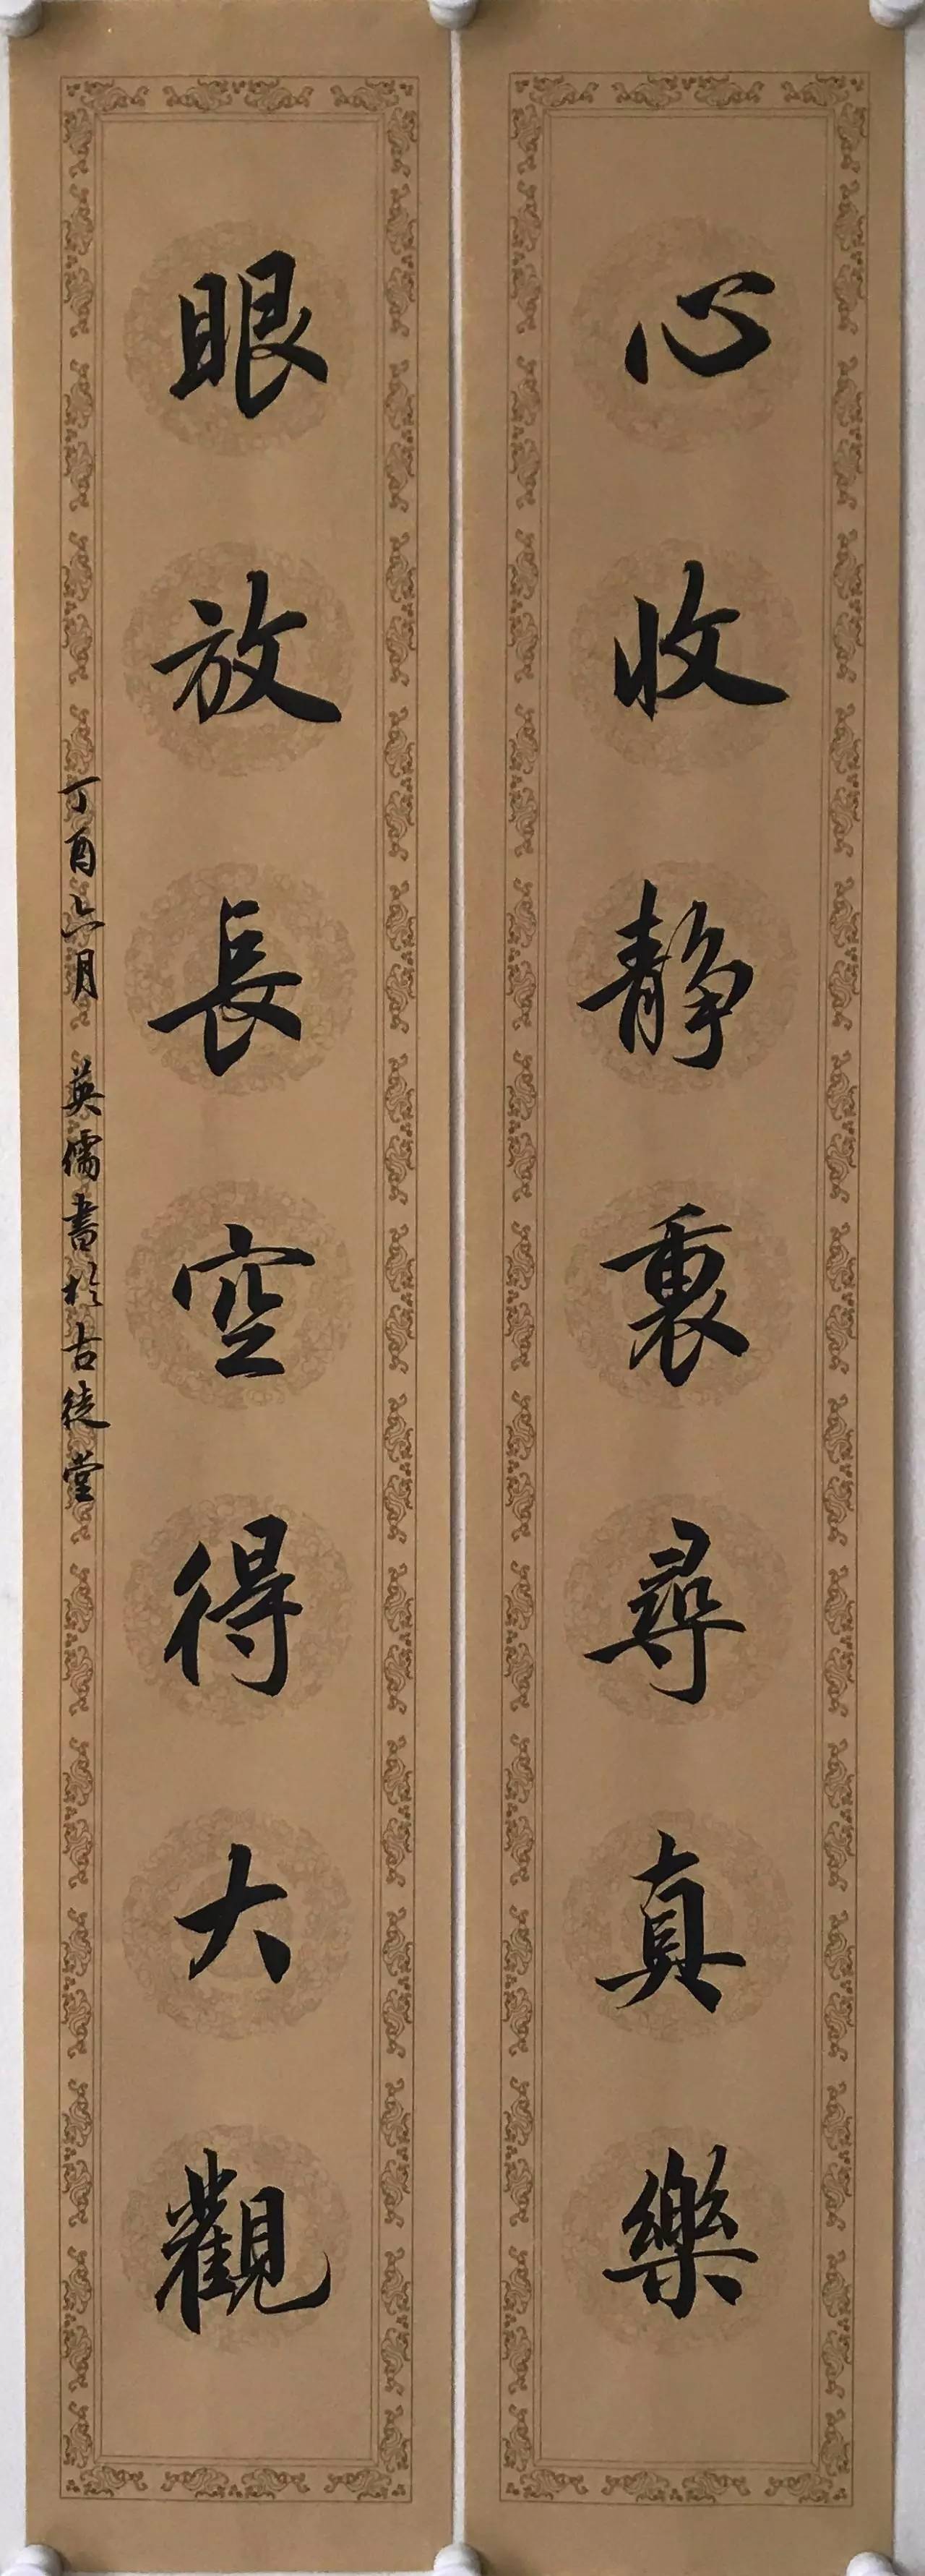 心收静裏尋真樂
眼放長空得大觀
丁酉六月 英儒書於古徒堂